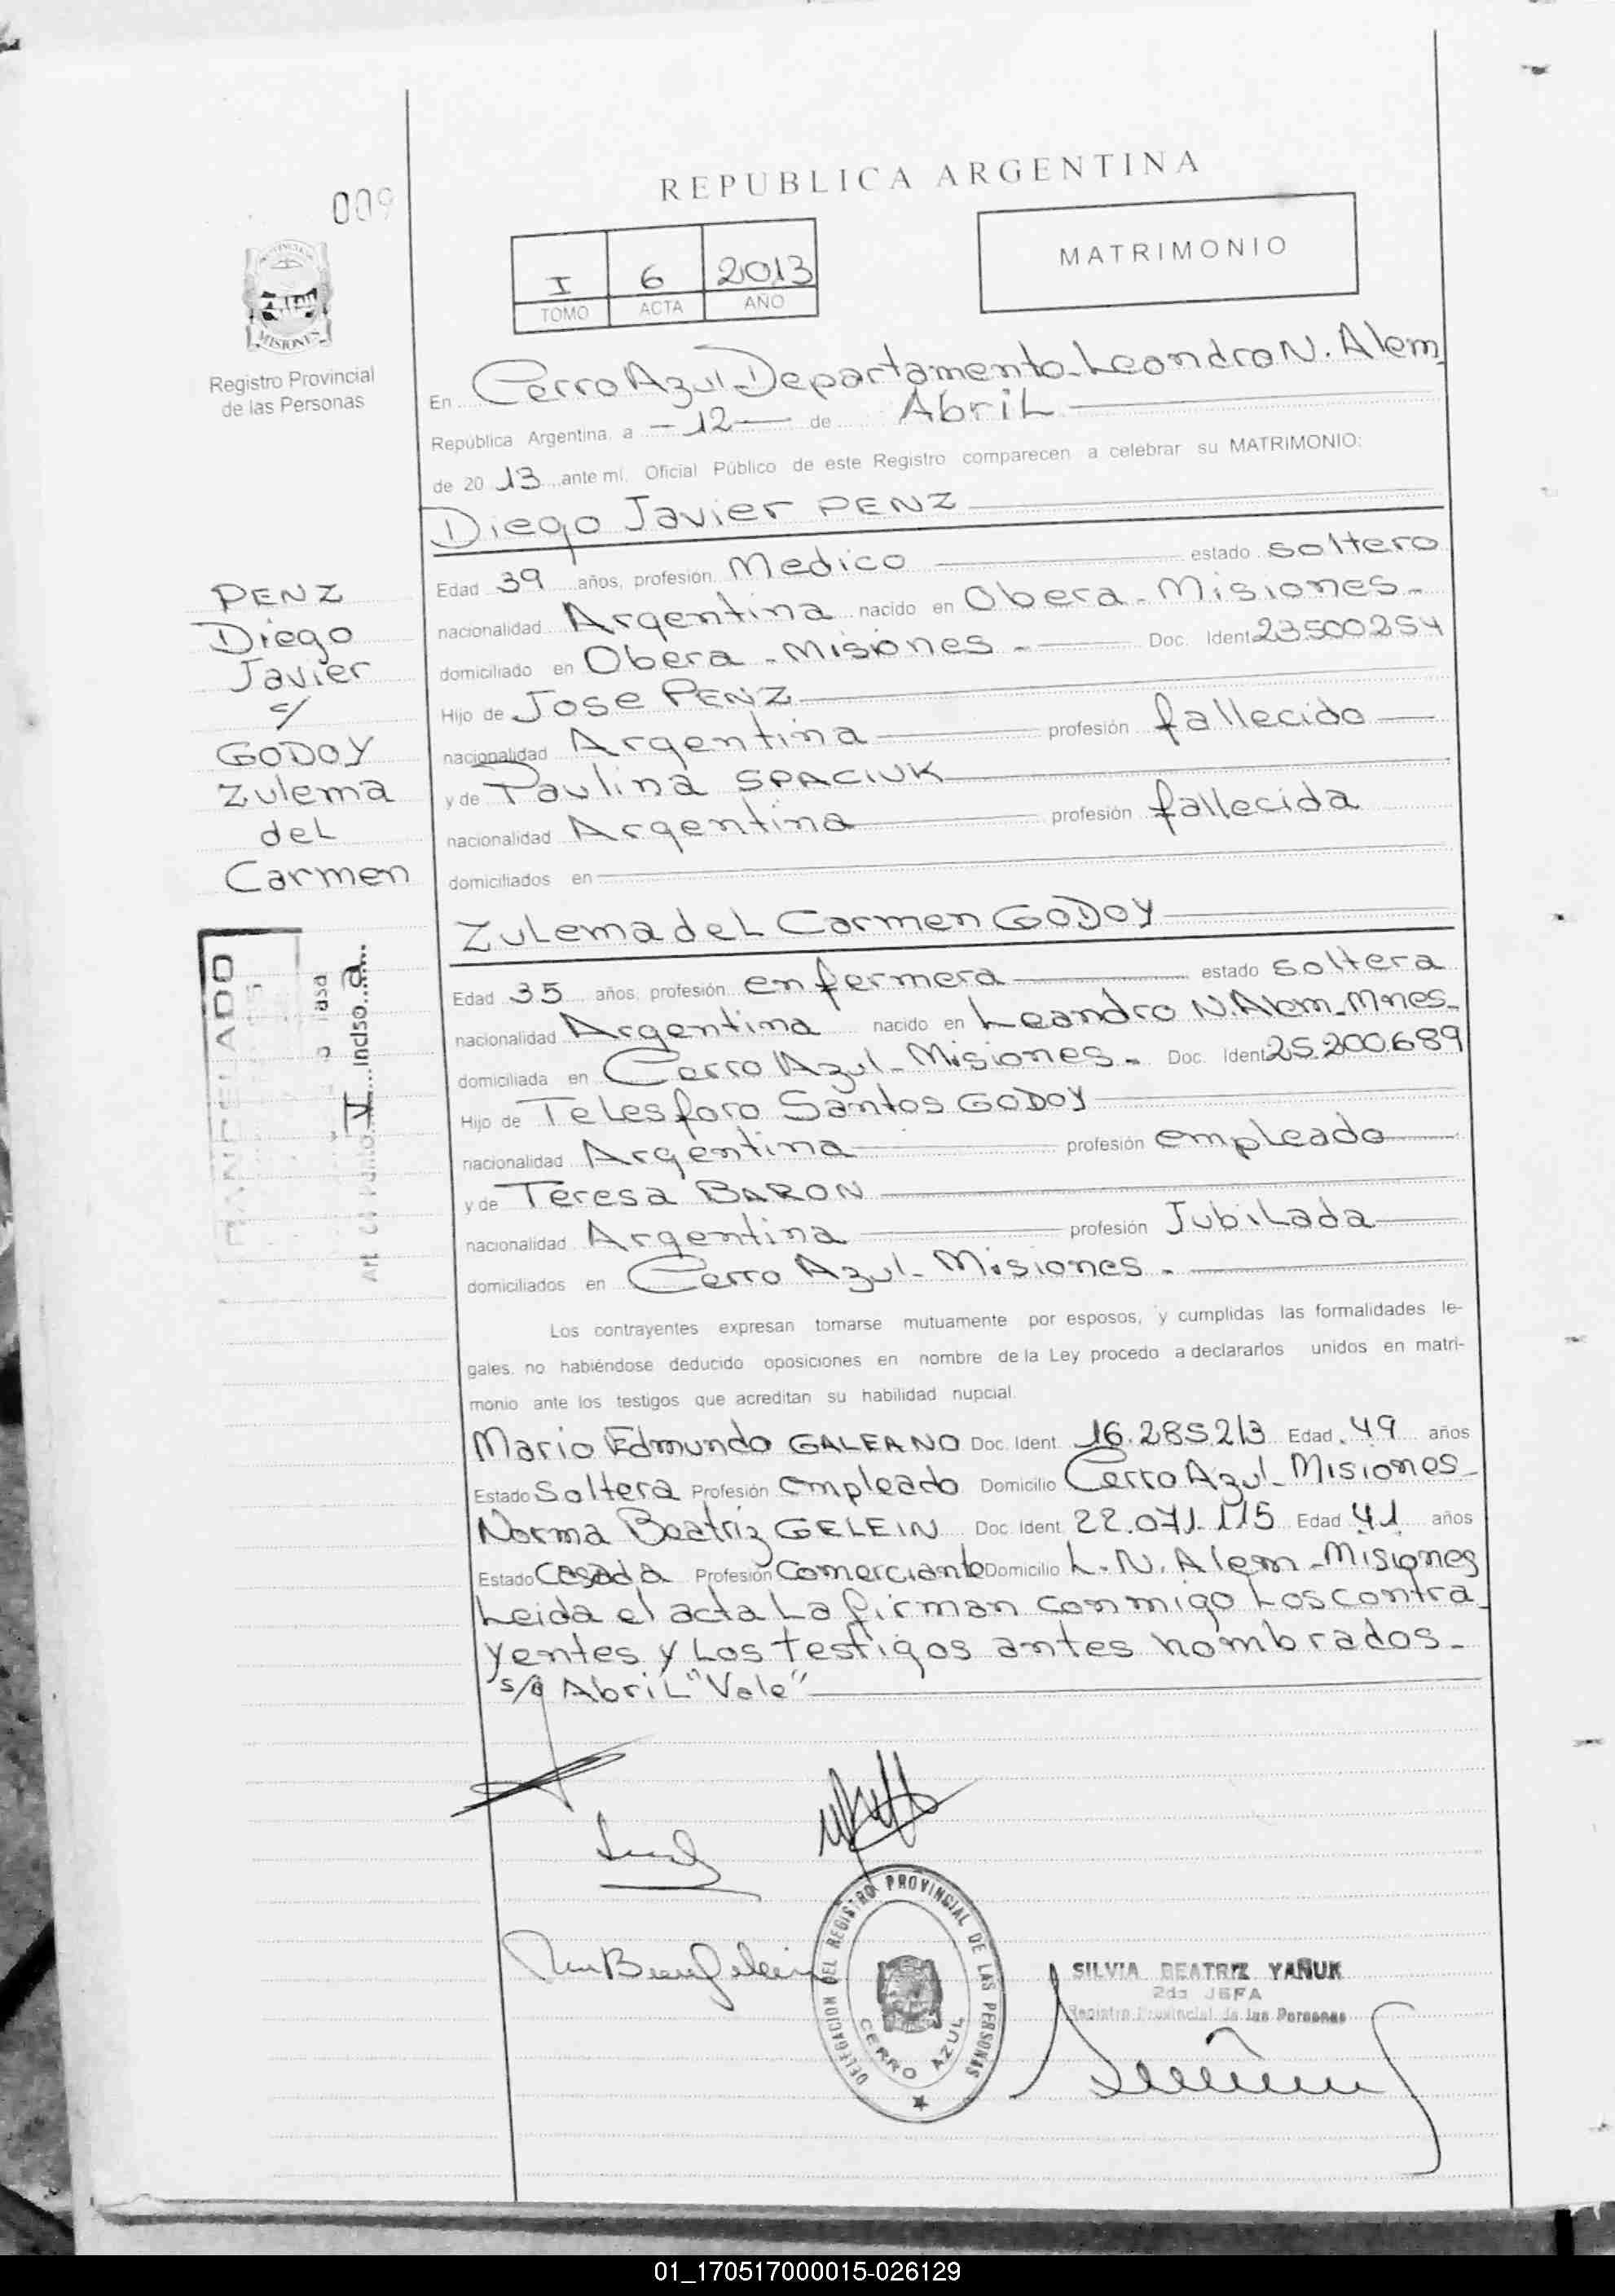 009
REPUBLICA ARGENTINA
MATRIMONIO
I 6 2013
TOMO ACTA AÑO
PROVINCIA
MISIONES
Registro Provincial
de las Personas
En Cerro Azul-Departamento-Leandro N. Alem
República Argentina, a -12- de Abril
de 20 13 ante mí, Oficial Público de este Registro comparecen a celebrar su MATRIMONIO:
Diego Javier PENZ
Edad 39 años, profesión Medico estado soltero
nacionalidad Argentina nacido en Obera - Misiones -
domiciliado en Obera - Misiones - Doc. Ident 23.500.254
Hijo de Jose PENZ
nacionalidad Argentina profesión fallecido
y de Paulina SPACIUK
nacionalidad Argentina profesión fallecida
domiciliados en
PENZ
Diego
Javier
c/
GODOY
Zulema
del
Carmen
Zulema del Carmen GODOY
Edad 35 años, profesión enfermera estado soltera
nacionalidad Argentina nacido en Leandro N. Alem - Mnes -
domiciliada en Cerro Azul - Misiones - Doc. Ident 25.200.689
Hijo de Telesforo Santos GODOY
nacionalidad Argentina profesión empleado
y de Teresa BARON
nacionalidad Argentina profesión Jubilada
domiciliados en Cerro Azul - Misiones -
inciso a
V
Los contrayentes expresan tomarse mutuamente por esposos, y cumplidas las formalidades le-
gales, no habiéndose deducido oposiciones en nombre de la Ley procedo a declararlos unidos en matri-
monio ante los testigos que acreditan su habilidad nupcial.
Mario Edmundo GALEANO Doc. Ident. 16.285213 Edad 49 años
Estado Soltera Profesión empleado Domicilio Cerro Azul - Misiones -
Norma Beatriz GELEIN Doc. Ident. 22.071.115 Edad 41 años
Estado Casada Profesión Comerciante Domicilio L. N. Alem - Misiones
Leida el acta La firman conmigo Los contra-
yentes y Los testigos antes nombrados -
s/q Abril "Vale"
DELEGACION DEL REGISTRO PROVINCIAL DE LAS PERSONAS
CERRO AZUL
SILVIA BEATRIZ YAÑUK
2da JEFA
Registro Provincial de las Personas
01_170517000015-026129